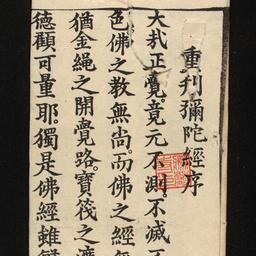 重刊彌陀經序
大哉正覺竟元不測不滅不
色佛之教無尚而佛之經
猶金繩之開覺路寶筏之
德顧可量耶獨是佛經雖